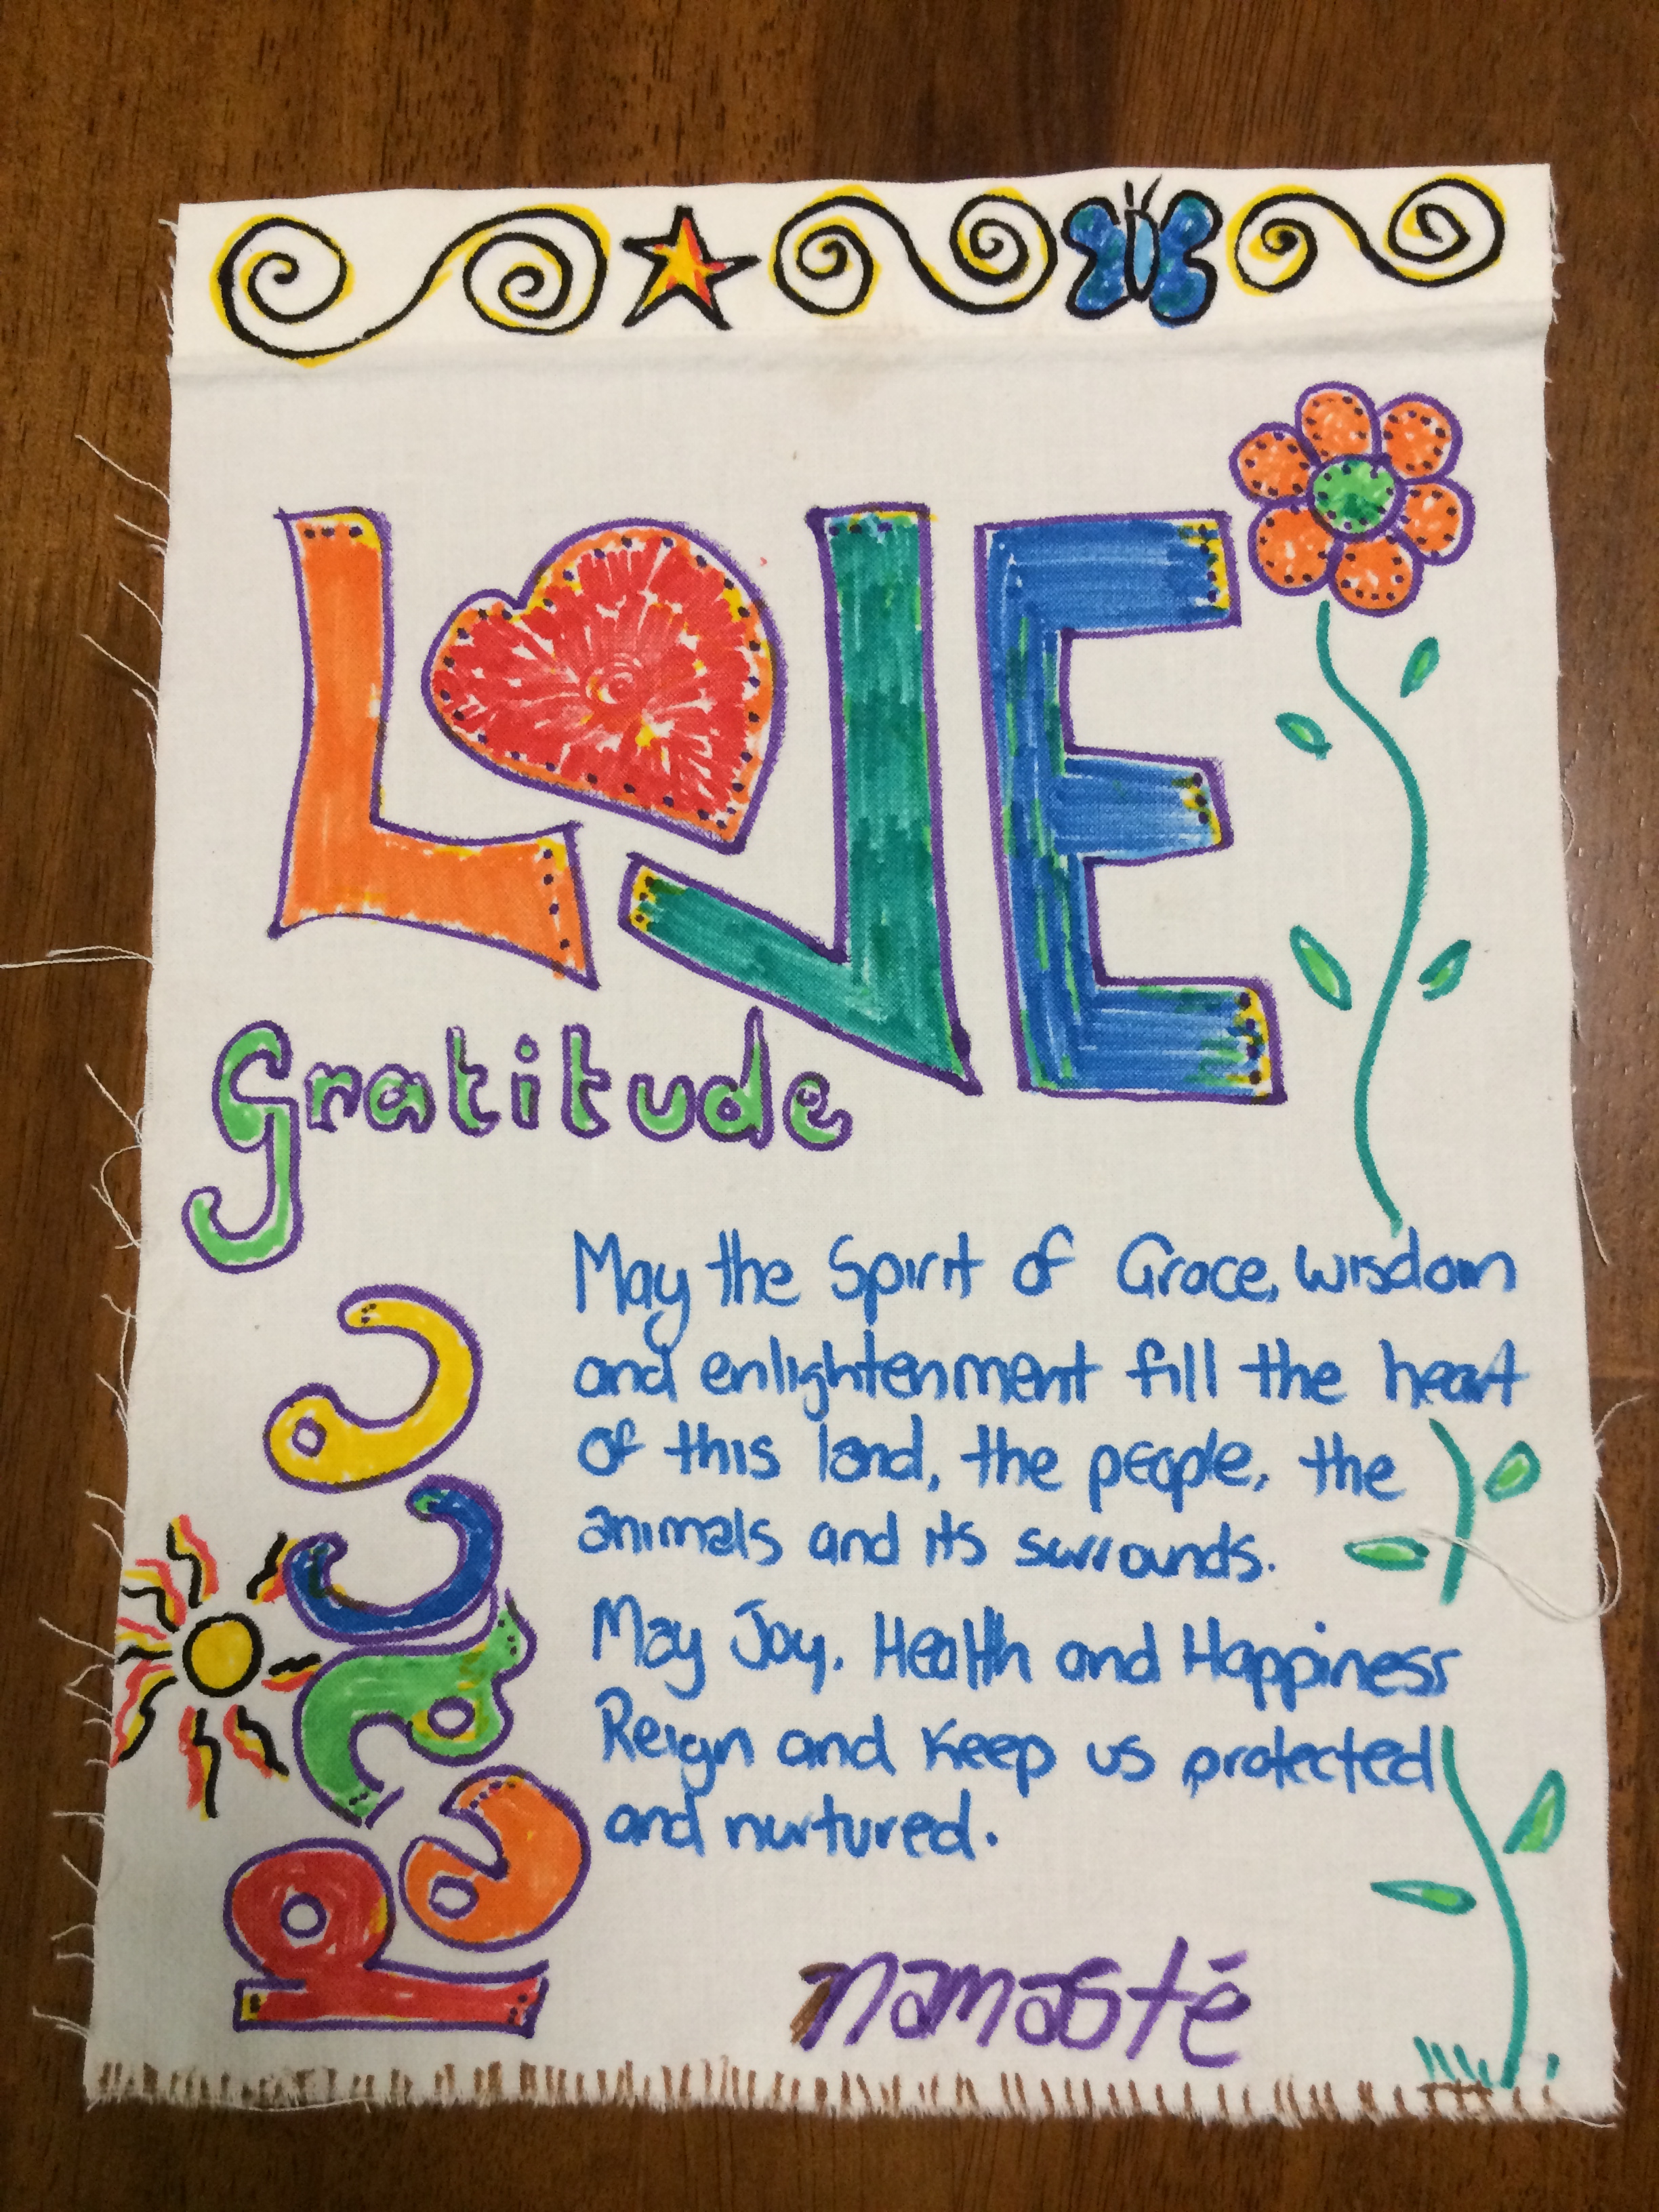 LOVE
gratitude
Peace
May the Spirit of Grace, wisdom
and enlightenment fill the heart
of this land, the people, the
animals and its surrounds.
May Joy, Health and Happiness
Reign and Keep us protected
and nurtured.
namasté